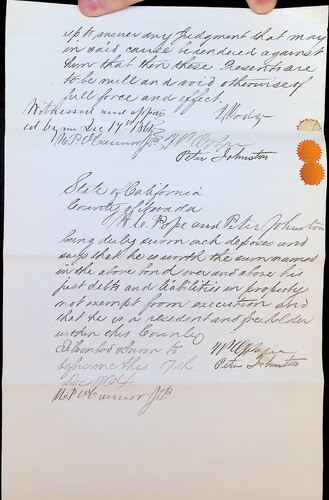 up to answer any Judgment that may
in said cause be rendered against
him that then these Presents are
to be null and void otherwise of
full force and effect.
Witnessed and
ed by me Dec 17th
Peter Johnston
State of California
County of Nevada
W. C. Pope and Peter Johnston
being duly sworn each deposes and
says that he is worth the sum named
in the above bond over and above his
just debts and liabilities in property
not exempt from execution and
that he is a resident and freeholder
within this County
Subscribed & Sworn to
before me this 17th
Peter Johnston
Dec 1864
J.P.